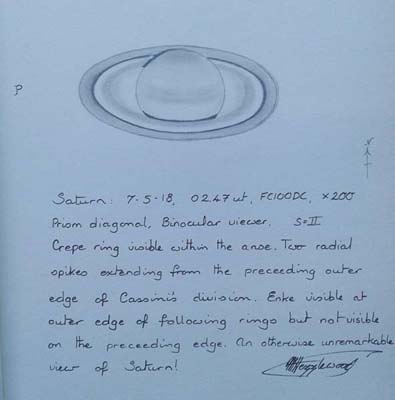 P
N
Saturn: 7-5-18, 02.47 ut, FC100DC, x200
Prism diagonal, Binocular viewer. S=II
Crepe ring visible within the ansae. Two radial
spikes extending from the preceeding outer
edge of Cassini's division. Enke visible at
outer edge of following rings but not visible
on the preceeding edge. An otherwise unremarkable
view of Saturn!